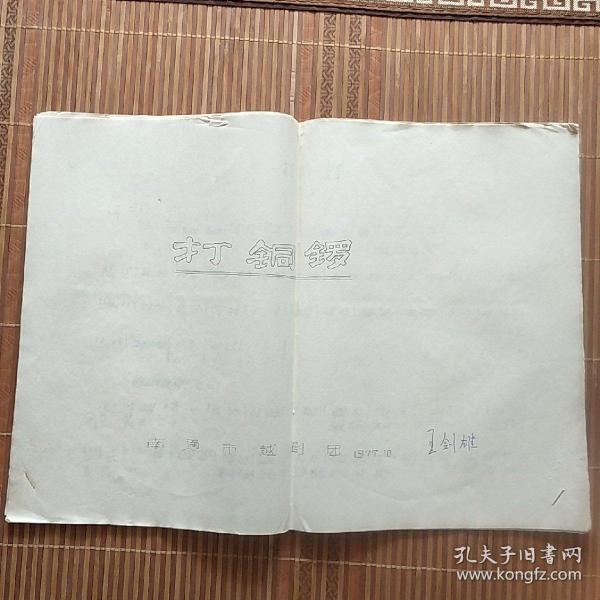 打銅鑼
南通市越剧团 1977.10.
王剑雄
孔夫子旧书网
www.kongfz.com